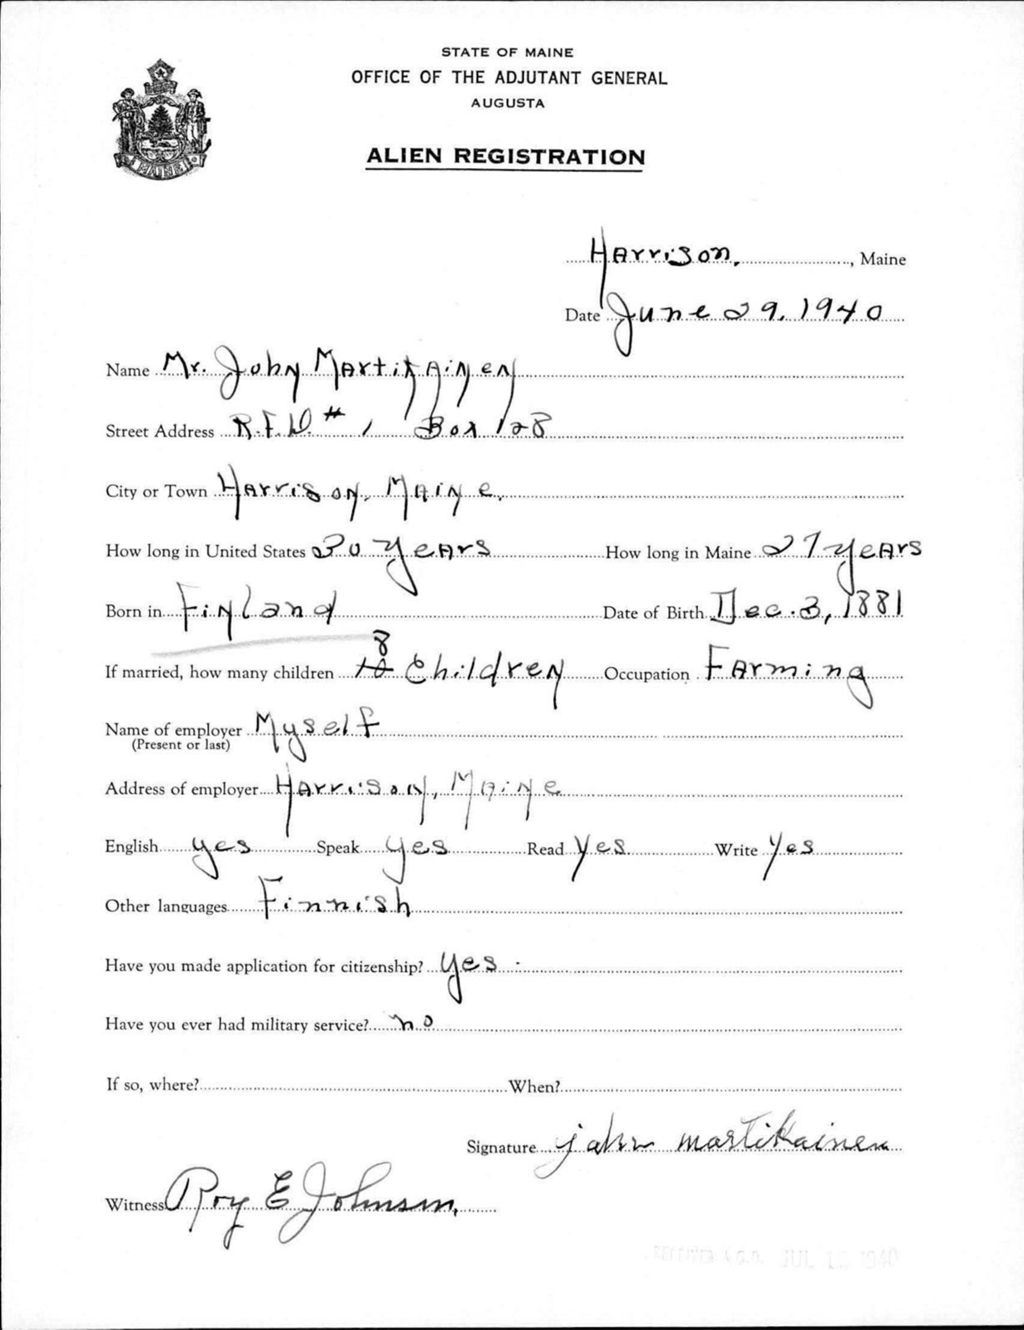 STATE OF MAINE
OFFICE OF THE ADJUTANT GENERAL
AUGUSTA
MAINE
ALIEN REGISTRATION
Harrison, Maine
Date June 29, 1940
Name Mr. John Martikainen
Street Address R.F.D. # 1 Box 128
City or Town Harrison, Maine.
How long in United States 30 years How long in Maine 27 years
Born in Finland Date of Birth Dec. 3, 1881
8
If married, how many children 10 Children Occupation Farming
Name of employer Myself
(Present or last)
Address of employer Harrison, Maine
English yes Speak yes Read yes Write yes
Other languages Finnish
Have you made application for citizenship? yes
Have you ever had military service? no
If so, where? When?
Signature john martikainen
Witness Roy E Johnson.
RECEIVED A.G.O. JUL 1940